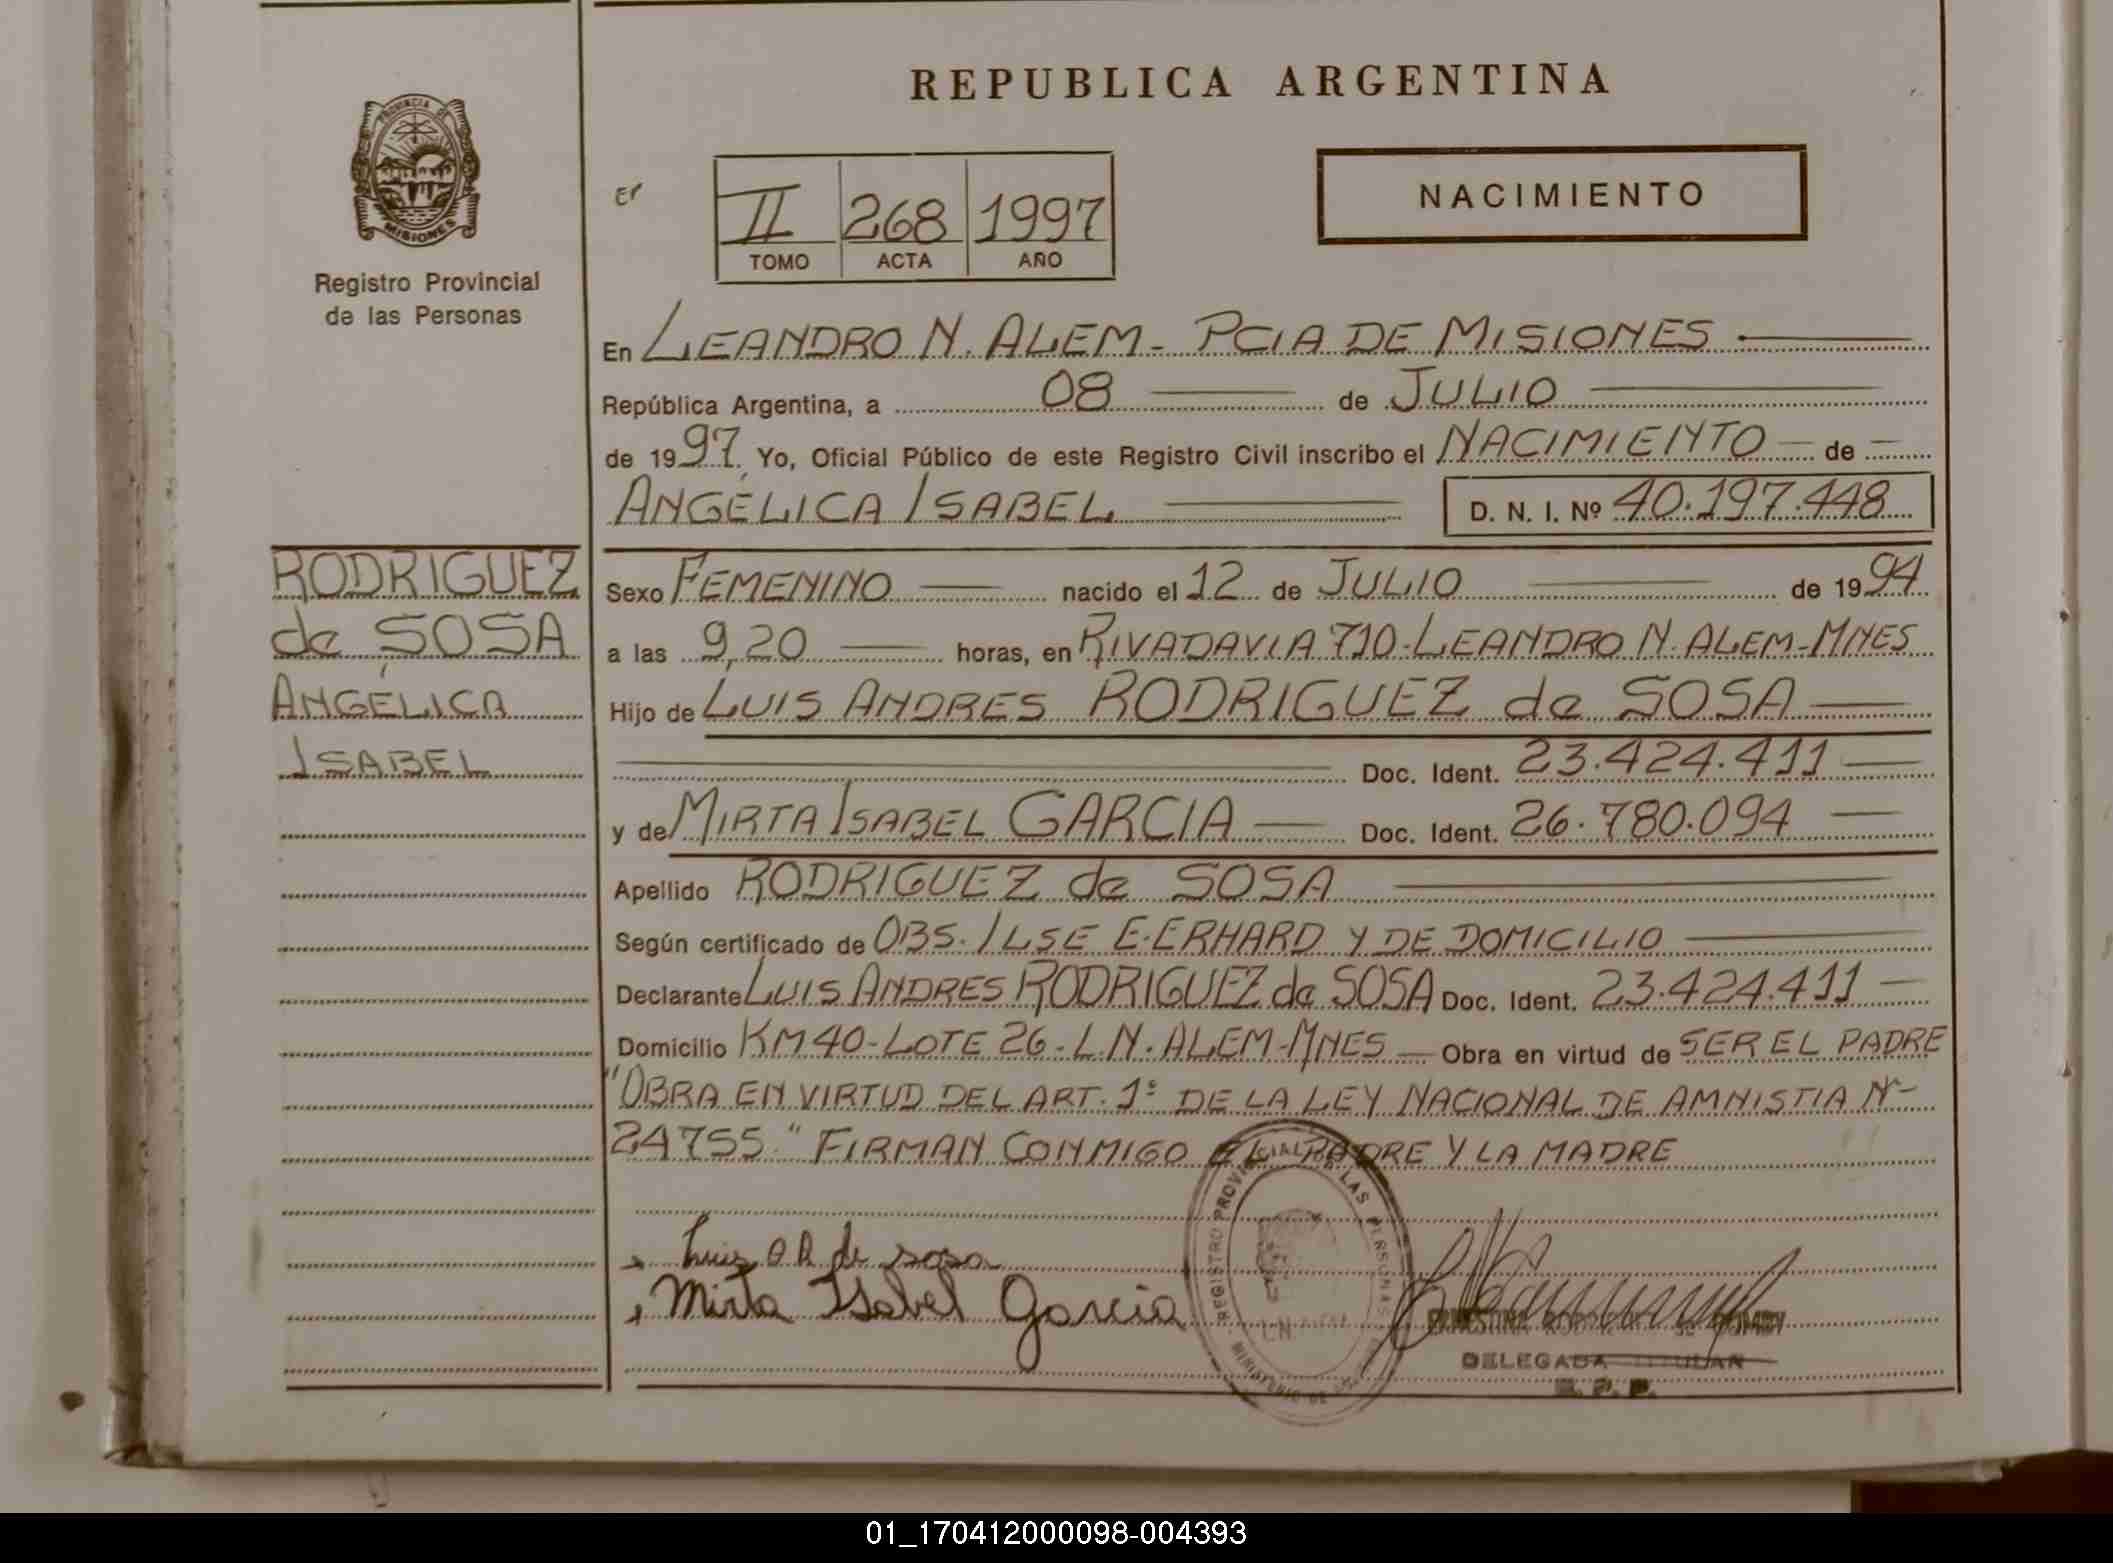 REPUBLICA ARGENTINA
PROVINCIA DE
MISIONES
Registro Provincial
de las Personas
II 268 1997
TOMO ACTA AÑO
NACIMIENTO
En LEANDRO N. ALEM - PCIA DE MISIONES
República Argentina, a 08 de JULIO
de 1997. Yo, Oficial Público de este Registro Civil inscribo el NACIMIENTO de
ANGÉLICA ISABEL D. N. I. Nº 40.197.448
RODRIGUEZ
de SOSA
ANGÉLICA
ISABEL
Sexo FEMENINO nacido el 12 de JULIO de 1994
a las 9,20 horas, en RIVADAVIA 710-LEANDRO N. ALEM-MNES
Hijo de LUIS ANDRES RODRIGUEZ de SOSA
Doc. Ident. 23.424.411
y de MIRTA ISABEL GARCIA Doc. Ident. 26.780.094
Apellido RODRIGUEZ de SOSA
Según certificado de OBS. ILSE E. ERHARD Y DE DOMICILIO
Declarante LUIS ANDRES RODRIGUEZ de SOSA Doc. Ident. 23.424.411
Domicilio KM 40-LOTE 26-L.N. ALEM-MNES Obra en virtud de SER EL PADRE
"OBRA EN VIRTUD DEL ART. 1º DE LA LEY NACIONAL DE AMNISTIA Nº
24755." FIRMAN CONMIGO EL PADRE Y LA MADRE
Luis A R de sosa
Mirta Isabel Garcia
REGISTRO PROVINCIAL DE LAS PERSONAS
MINISTERIO DE
DELEGADA TITULAR
01_170412000098-004393